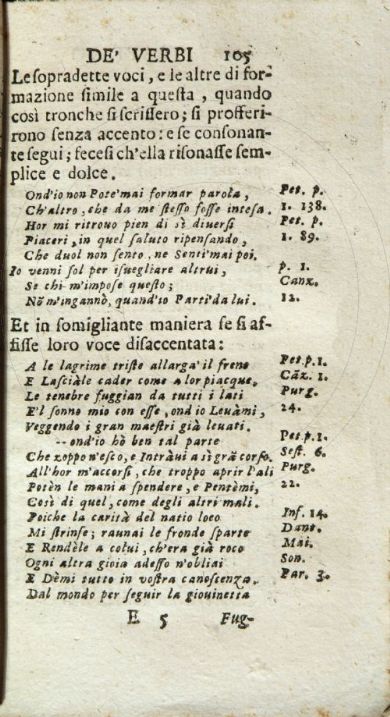 DE' VERBI 105
Le sopradette voci, e le altre di for-
mazione simile a questa, quando
così tronche si scrissero; si profferi-
rono senza accento: e se consonan-
te seguì; fecesi ch'ella risonasse sem-
plice e dolce.
Ond'io non Pote' mai formar parola, Pet. p.
Ch'altro, che da me stesso fosse intesa. 1. 138.
Hor mi ritrovo pien di sì diversi Pet. p.
Piaceri, in quel saluto ripensando, 1. 89.
Che duol non sento, ne Sentì mai poi.
Io venni sol per isvegliare altrui, p. 1.
Se chi m'impose questo; Canz.
Nō m'ingannò, quand'io Partì da lui. 12.
Et in somigliante maniera se si af-
fisse loro voce disaccentata:
A le lagrime triste allarga'il freno Pet. p. 1.
E Lasciàle cader come a lor piacque. Cāz. 1.
Le tenebre fuggian da tutti i lati Purg.
E'l sonno mio con esse, ond io Levàmi, 24.
Veggendo i gran maestri già levati.
--ond'io hò ben tal parte Pet. p. 1.
Che zoppo n'esco, e Intràvi a sì grā corso. Sest. 6.
All'hor m'accorsi, che troppo aprir l'ali Purg.
Potèn le mani a spendere, e Pentèmi, 22.
Così di quel, come degli altri mali.
Poiche la carità del natio loco Inf. 14.
Mi strinse; raunai le fronde sparte Dant.
E Rendèle a colui, ch'era già roco Mai.
Ogni altra gioia adesso n'obliai Son.
E Dèmi tutto in vostra canoscenza. Par. 3.
Dal mondo per seguir la giovinetta
E 5 Fug-